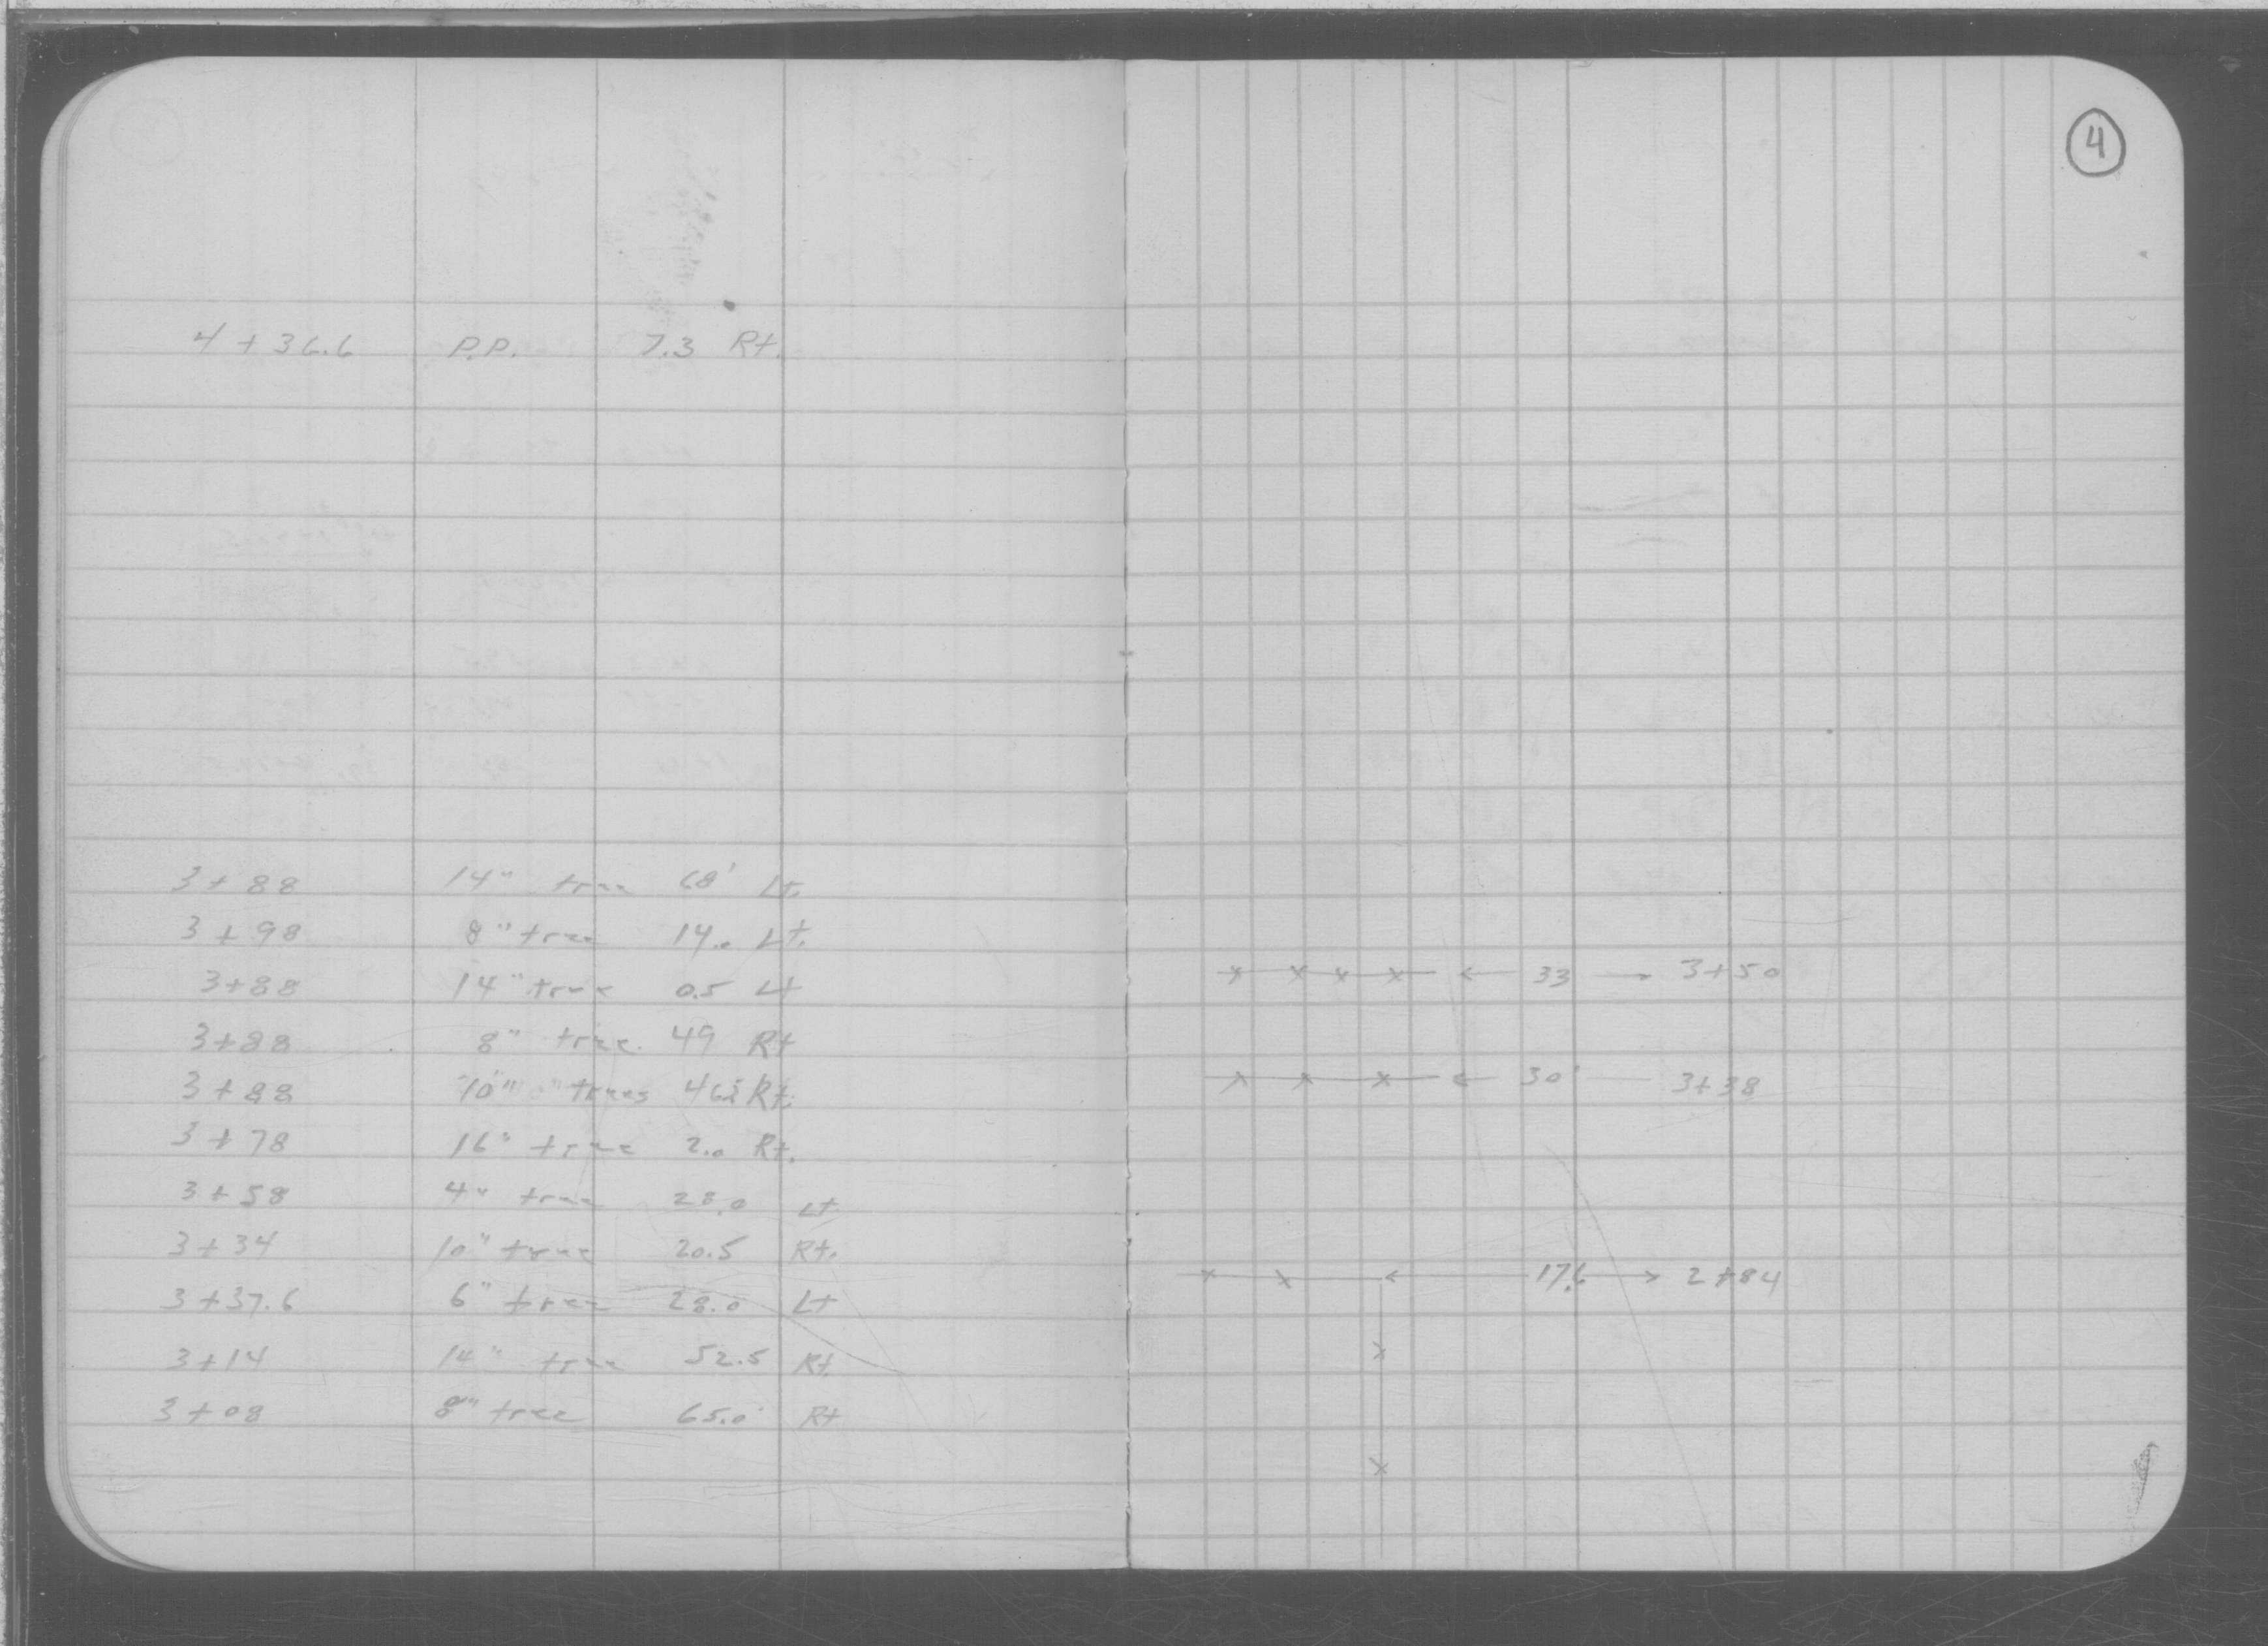 4
4 + 36.6 P.P. 7.3 Rt.
3 + 88 14" tree 68' Lt.
3 + 98 8" tree 14.0 Lt.
3+88 14" tree 0.5 Lt
3+88 8" tree 49 Rt
3 + 88 10" trees Rt.
3 + 78 16" tree 2.0 Rt.
3 + 58 4" tree 28.0 Lt
3 + 34 10" tree 20.5 Rt.
3 + 37.6 6" tree 28.0 Lt
3+14 14" tree 52.5 Rt
3 + 08 8" tree 65.0 Rt
33 3+50
30' 3+38
17.6 2+84